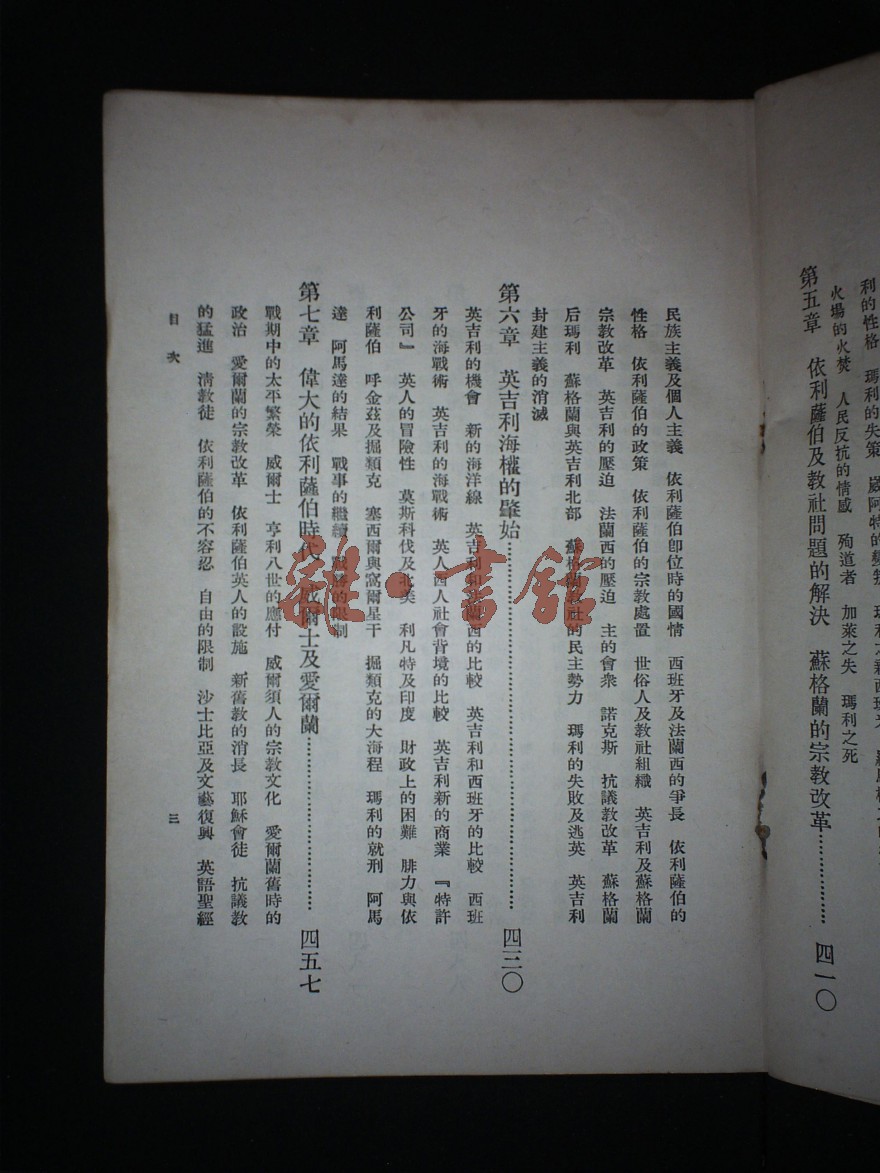 利的性格 瑪利的失策 崴阿特的變叛
火場的火焚 人民反抗的情感 殉道者 加萊之失 瑪利之死
第五章 依利薩伯及教社問題的解決 蘇格蘭的宗教改革……………四一〇
民族主義及個人主義 依利薩伯卽位時的國情 西班牙及法蘭西的爭長 依利薩伯的
性格 依利薩伯的政策 依利薩伯的宗教處置 世俗人及教社組織 英吉利及蘇格蘭
宗教改革 英吉利的壓迫 法蘭西的壓迫 主的會衆 諾克斯 抗議教改革 蘇格蘭
后瑪利 蘇格蘭與英吉利北部 蘇格蘭教社的民主勢力 瑪利的失敗及逃英 英吉利
封建主義的消滅
第六章 英吉利海權的肇始……………四三〇
英吉利的機會 新的海洋線 英吉利和法蘭西的比較 英吉利和西班牙的比較 西班
牙的海戰術 英吉利的海戰術 英人西人社會背境的比較 英吉利新的商業 『特許
公司』 英人的冒險性 莫斯科伐及北美 利凡特及印度 財政上的困難 腓力與依
利薩伯 呼金茲及掘類克 塞西爾與窩爾星干 掘類克的大海程 瑪利的就刑 阿馬
達 阿馬達的結果 戰事的繼續 戰勝的限制
第七章 偉大的依利薩伯時代 威爾士及愛爾蘭……………四五七
戰期中的太平繁榮 威爾士 亨利八世的應付 威爾須人的宗教文化 愛爾蘭舊時的
政治 愛爾蘭的宗教改革 依利薩伯英人的設施 新舊教的消長 耶穌會徒 抗議教
的猛進 清教徒 依利薩伯的不容忍 自由的限制 沙士比亞及文藝復興 英語聖經
目次 三
雜·書館